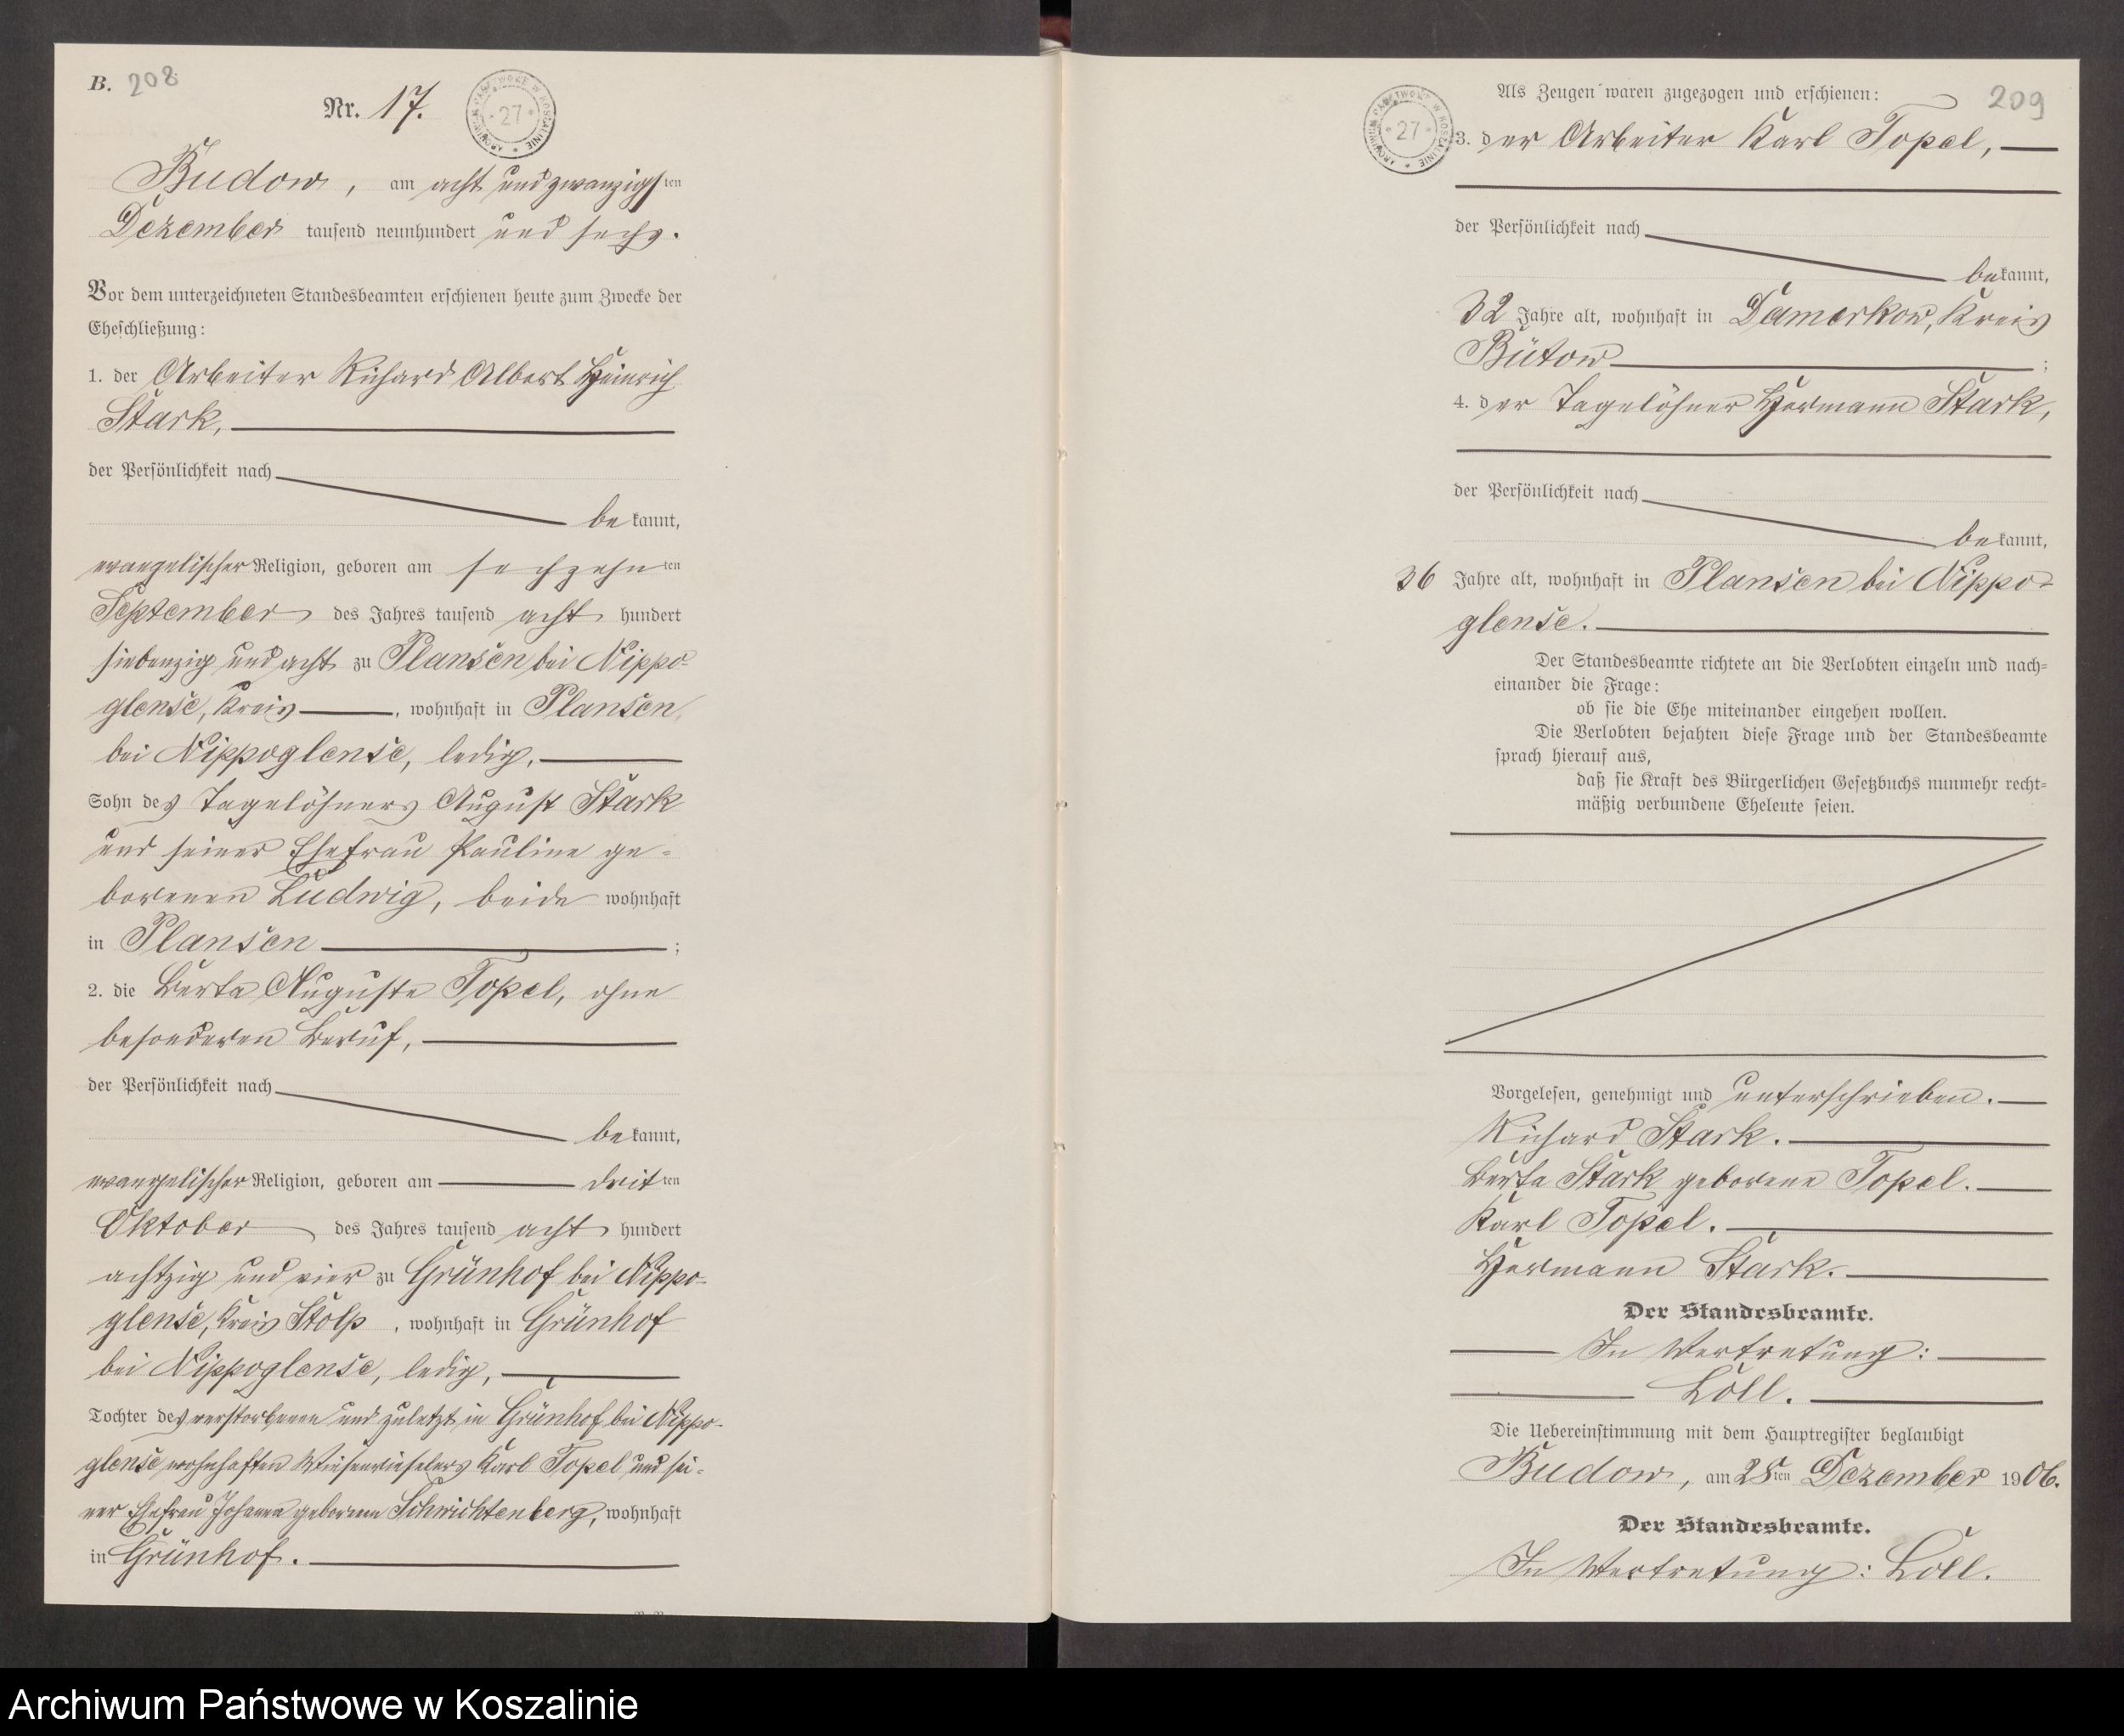 B. 208
Nr. 17.
ARCHIWUM PAŃSTWOWE W KOSZALINIE * 27 *
Budow, am acht und zwanzigsten
Dezember tausend neunhundert und sechs.
Vor dem unterzeichneten Standesbeamten erschienen heute zum Zwecke der
Eheschließung:
1. der Arbeiter Richard Albert Heinrich
Stark,
der Persönlichkeit nach
bekannt,
evangelischer Religion, geboren am sechzehnten
September des Jahres tausend acht hundert
siebenzig und acht zu Plansen bei Nippo-
glense, Kreis , wohnhaft in Plansen
bei Nippoglense, ledig,
Sohn des Tagelöhners August Stark
und seiner Ehefrau Pauline ge-
borenen Ludwig, beide wohnhaft
in Plansen ;
2. die Berta Auguste Topel, ohne
besonderen Beruf,
der Persönlichkeit nach
bekannt,
evangelischer Religion, geboren am dritten
Oktober des Jahres tausend acht hundert
achtzig und vier zu Grünhof bei Nippo-
glense, Kreis Stolp , wohnhaft in Grünhof
bei Nippoglense, ledig,
Tochter des verstorbenen und zuletzt in Grünhof bei Nippo-
glense wohnhaften Karl Topel und sei-
ner Ehefrau Johanna geborenen Schwichtenberg, wohnhaft
in Grünhof.
209
ARCHIWUM PAŃSTWOWE W KOSZALINIE * 27 *
Als Zeugen waren zugezogen und erschienen:
3. der Arbeiter Karl Topel,
der Persönlichkeit nach
bekannt,
32 Jahre alt, wohnhaft in Damerkow, Kreis
Bütow ;
4. der Tagelöhner Hermann Stark,
der Persönlichkeit nach
bekannt,
36 Jahre alt, wohnhaft in Plansen bei Nippo-
glense.
Der Standesbeamte richtete an die Verlobten einzeln und nach-
einander die Frage:
ob sie die Ehe miteinander eingehen wollen.
Die Verlobten bejahten diese Frage und der Standesbeamte
sprach hierauf aus,
daß sie Kraft des Bürgerlichen Gesetzbuchs nunmehr recht-
mäßig verbundene Eheleute seien.
Vorgelesen, genehmigt und unterschrieben.
Richard Stark.
Berta Stark geborene Topel.
Karl Topel.
Hermann Stark.
Der Standesbeamte.
In Vertretung:
Loll.
Die Uebereinstimmung mit dem Hauptregister beglaubigt
Budow, am 28ten Dezember 1906.
Der Standesbeamte.
In Vertretung: Loll.
Archiwum Państwowe w Koszalinie